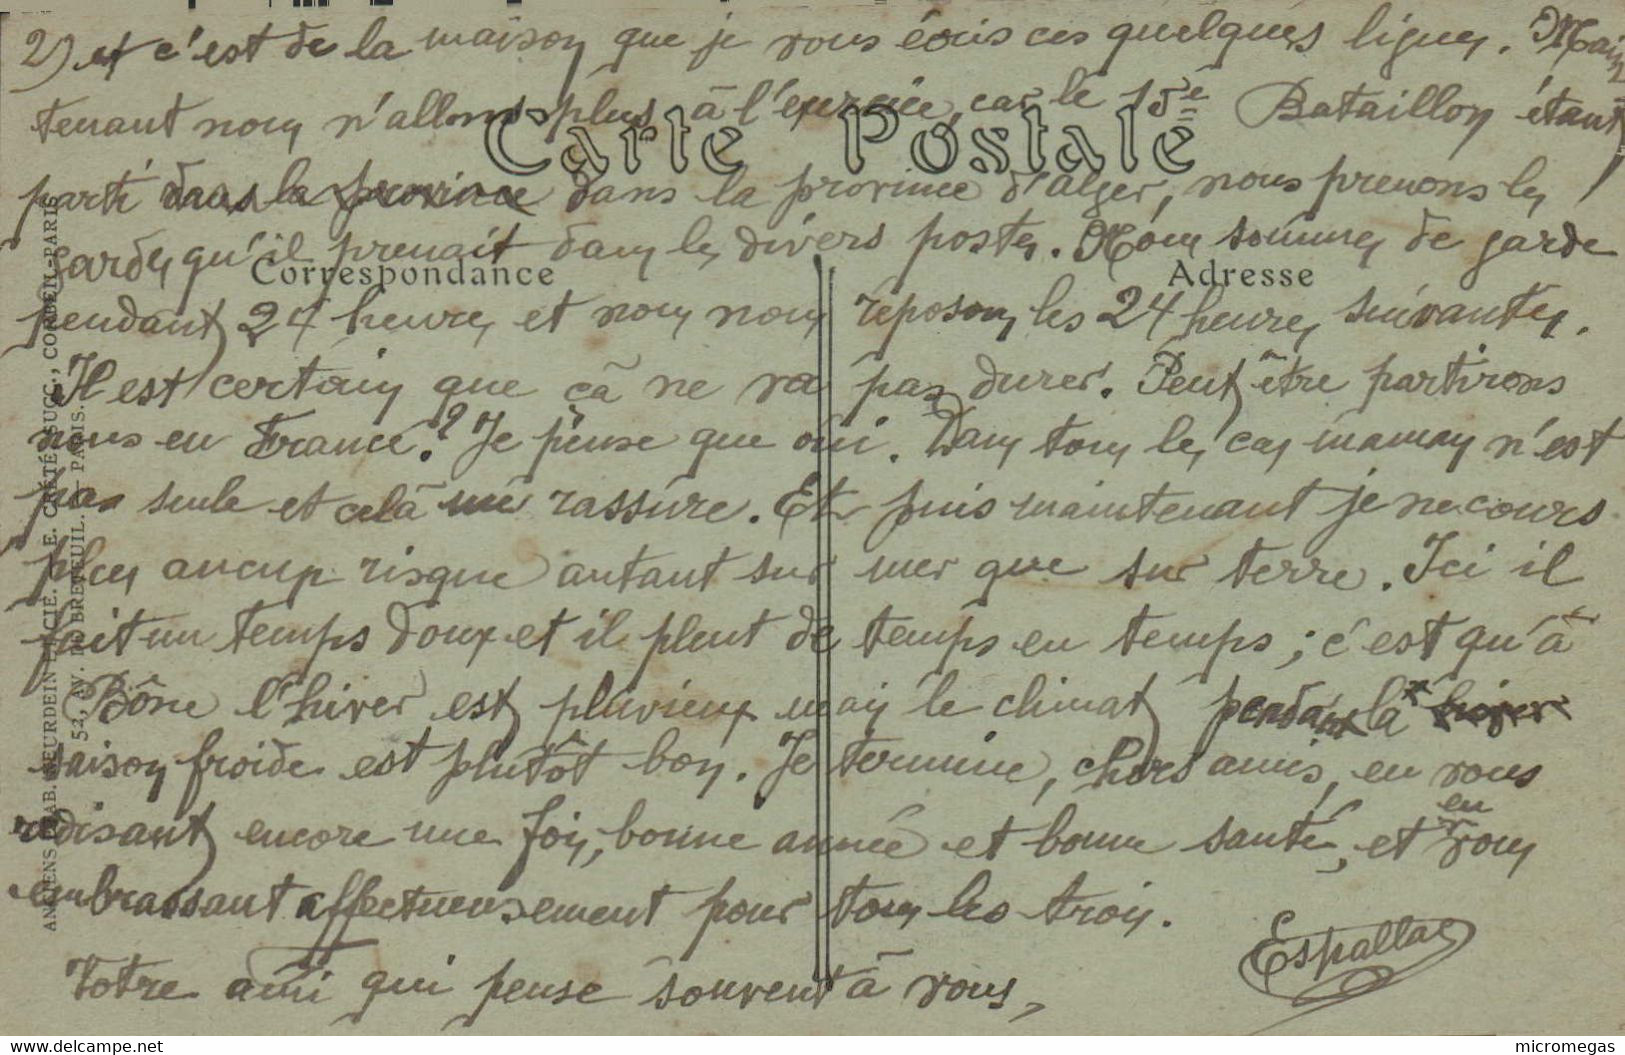 2) et c'est de la maison que je vous écris ces quelques lignes. Main
tenant nous n'allons plus à l'exercice, car le 15è Bataillon étant
Carte Postale
parti dans la province dans la province d'Alger, nous prenons les
gardes qu'il prenait dans les divers postes. Nous sommes de garde
Correspondance
Adresse
pendant 24 heures et nous nous reposons les 24 heures suivantes.
Il est certain que çà ne va pas durer. Peut être partirons
nous en France? Je pense que oui. Dans tous les cas maman n'est
pas seule et celà me rassure. Et puis maintenant je ne cours
plus aucun risque autant sur mer que sur terre. Ici il
fait un temps doux et il pleut de temps en temps ; c'est qu'à
Bône l'hiver est pluvieux mais le climat pendant la hiver
saison froide est plutôt bon. Je termine, chers amis, en vous
redisant encore une fois, bonne année et bonne santé, et en vous
embrassant affectueusement pour tous les trois.
Votre ami qui pense souvent à vous,
Espallac
ANCIENS ETAB. NEURDEIN ET CIE. E. CRÉTÉ SUCC., CORBEIL-PARIS
52, AV. DE BRETEUIL. — PARIS.
www.delcampe.net
micromegas